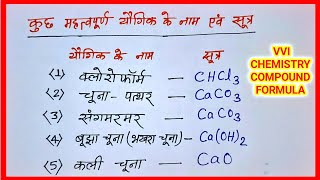 कुछ महत्वपूर्ण यौगिक के नाम एवं सूत्र
यौगिक के नाम सूत्र
(1) क्लोरोफॉर्म — CHCl3
(2) चूना - पत्थर — CaCO3
(3) संगमरमर — CaCO3
(4) बूझा चूना (भखरा चूना) — Ca(OH)2
(5) कली चूना — CaO
VVI
CHEMISTRY
COMPOUND
FORMULA